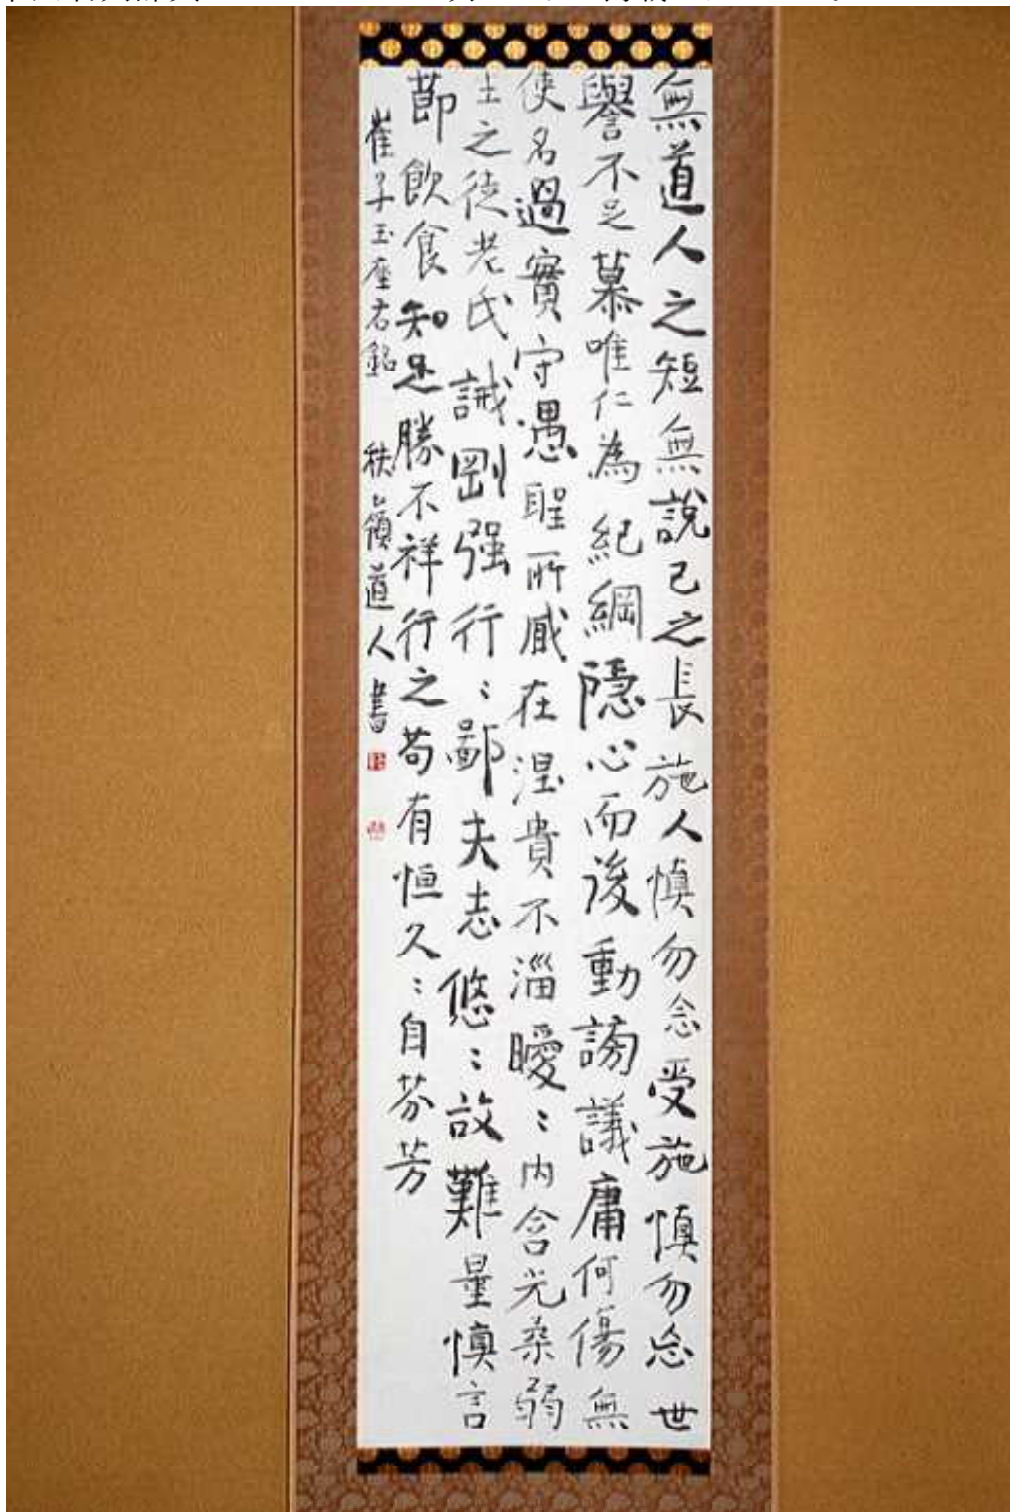 無道人之短無說己之長施人慎勿念受施慎勿忘世
譽不足慕唯仁為紀綱隱心而後動謗議庸何傷無
使名過實守愚聖所臧在涅貴不淄曖〻内含光柔弱
生之徒老氏誡剛强行〻鄙夫志悠〻故難量慎言
節飲食知足勝不祥行之苟有恒久〻自芬芳
崔子玉座右銘 秩嶺道人書